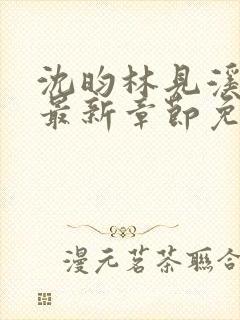 沈昀林見溪
最新章節免
漫元茗茶聯合